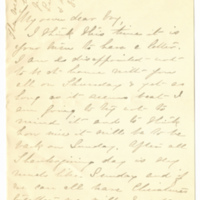 My own dear boy.
I think this time it is
your turn to have a letter.
I am so disappointed not
to be at home with you
all on Thursday & yet as
long as it seems best I
am going to try not to
mind it and to think
how nice it will be to be
back on Sunday. After all
Thanksgiving day is very
much like Sunday and if
we can all have Christmas